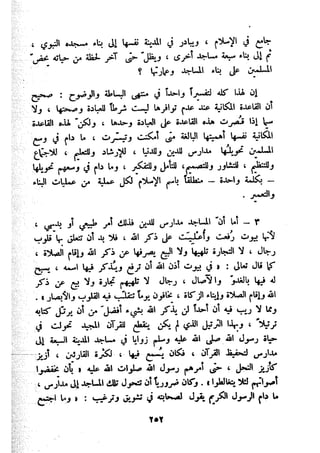 جامع في الإسلام ، ويبادر في المدينة نفسها إلى بناء مسجده النبوي ،
ثم إلى بناء سبعة مساجد أخرى ، ويظل حتى آخر لحظة من حياته يحض
المسلمين على بناء المساجد وعمارتها ؟
إن لهذا كله لتفسيراً واحداً في منتهى البساطة والوضوح : صحيح
أن القاعدة المكانية عند عدم توافرها ليست شرطاً للعبادة وصحتها ، ولا
سيما إذا قصرت هذه القاعدة على العبادة وحدها ، ولكن لهذه القاعدة
المكانية نفسها أهميتها البالغة متى أمكنت وتيسرت ، ما دام في وسع
المسلمين تحويلها مدارس للدين وللدنيا ، للإرشاد وللتعليم ، للاجتماع
وللتنظيم ، للتشاور وللتصميم، للتأمل وللتفكير ، وما دام في وسعهم تحويلها
– بكلمة واحدة – منطلقاً باسم الإسلام لكل عملية من عمليات البناء
والتعمير .
٣ – أما أن المساجد مدارس للدين فذلك أمر طبيعي أو بديهي ،
لأنها بيوت رفعت على ذكر الله ، فلا بد أن تتعلق بها قلوب
رجال ، لا التجارة تلهيها ولا البيع يصرفها عن ذكر الله وإقام الصلاة ،
كما قال تعالى : « في بيوت أذن الله أن ترفع ويذكر فيها اسمه ، يسبح
له فيها بالغدو والآصال ، رجال لا تلهيهم تجارة ولا بيع عن ذكر
الله وإقام الصلاة وإيتاء الزكاة ، يخافون يوماً تتقلب فيه القلوب والأبصار » .
وما لا ريب فيه أن أحداً لن يذكر الله بشيء أفضل من أن يرتل كتابه
ترتيلا ، وبهذا الترتيل الذي لم يكن ينقطع للقرآن المجيد تحولت في
حياة رسول الله صلى الله عليه وسلم زوايا في مساجد المدينة السبعة إلى
مدارس لتحفيظ القرآن ، فكان يسمع فيها ، لكثرة القارئين ، أزيز
كأزيز النحل ، حتى أمرهم رسول الله صلوات الله عليه « بأن يخفضوا
أصواتهم لئلا يتغالطوا » . وكان ضرورياً أن تتحول تلك المساجد إلى مدارس ،
ما دام الرسول الكريم يقول لصحابته في تشويق وترغيب : « وما اجتمع
٢٥٢